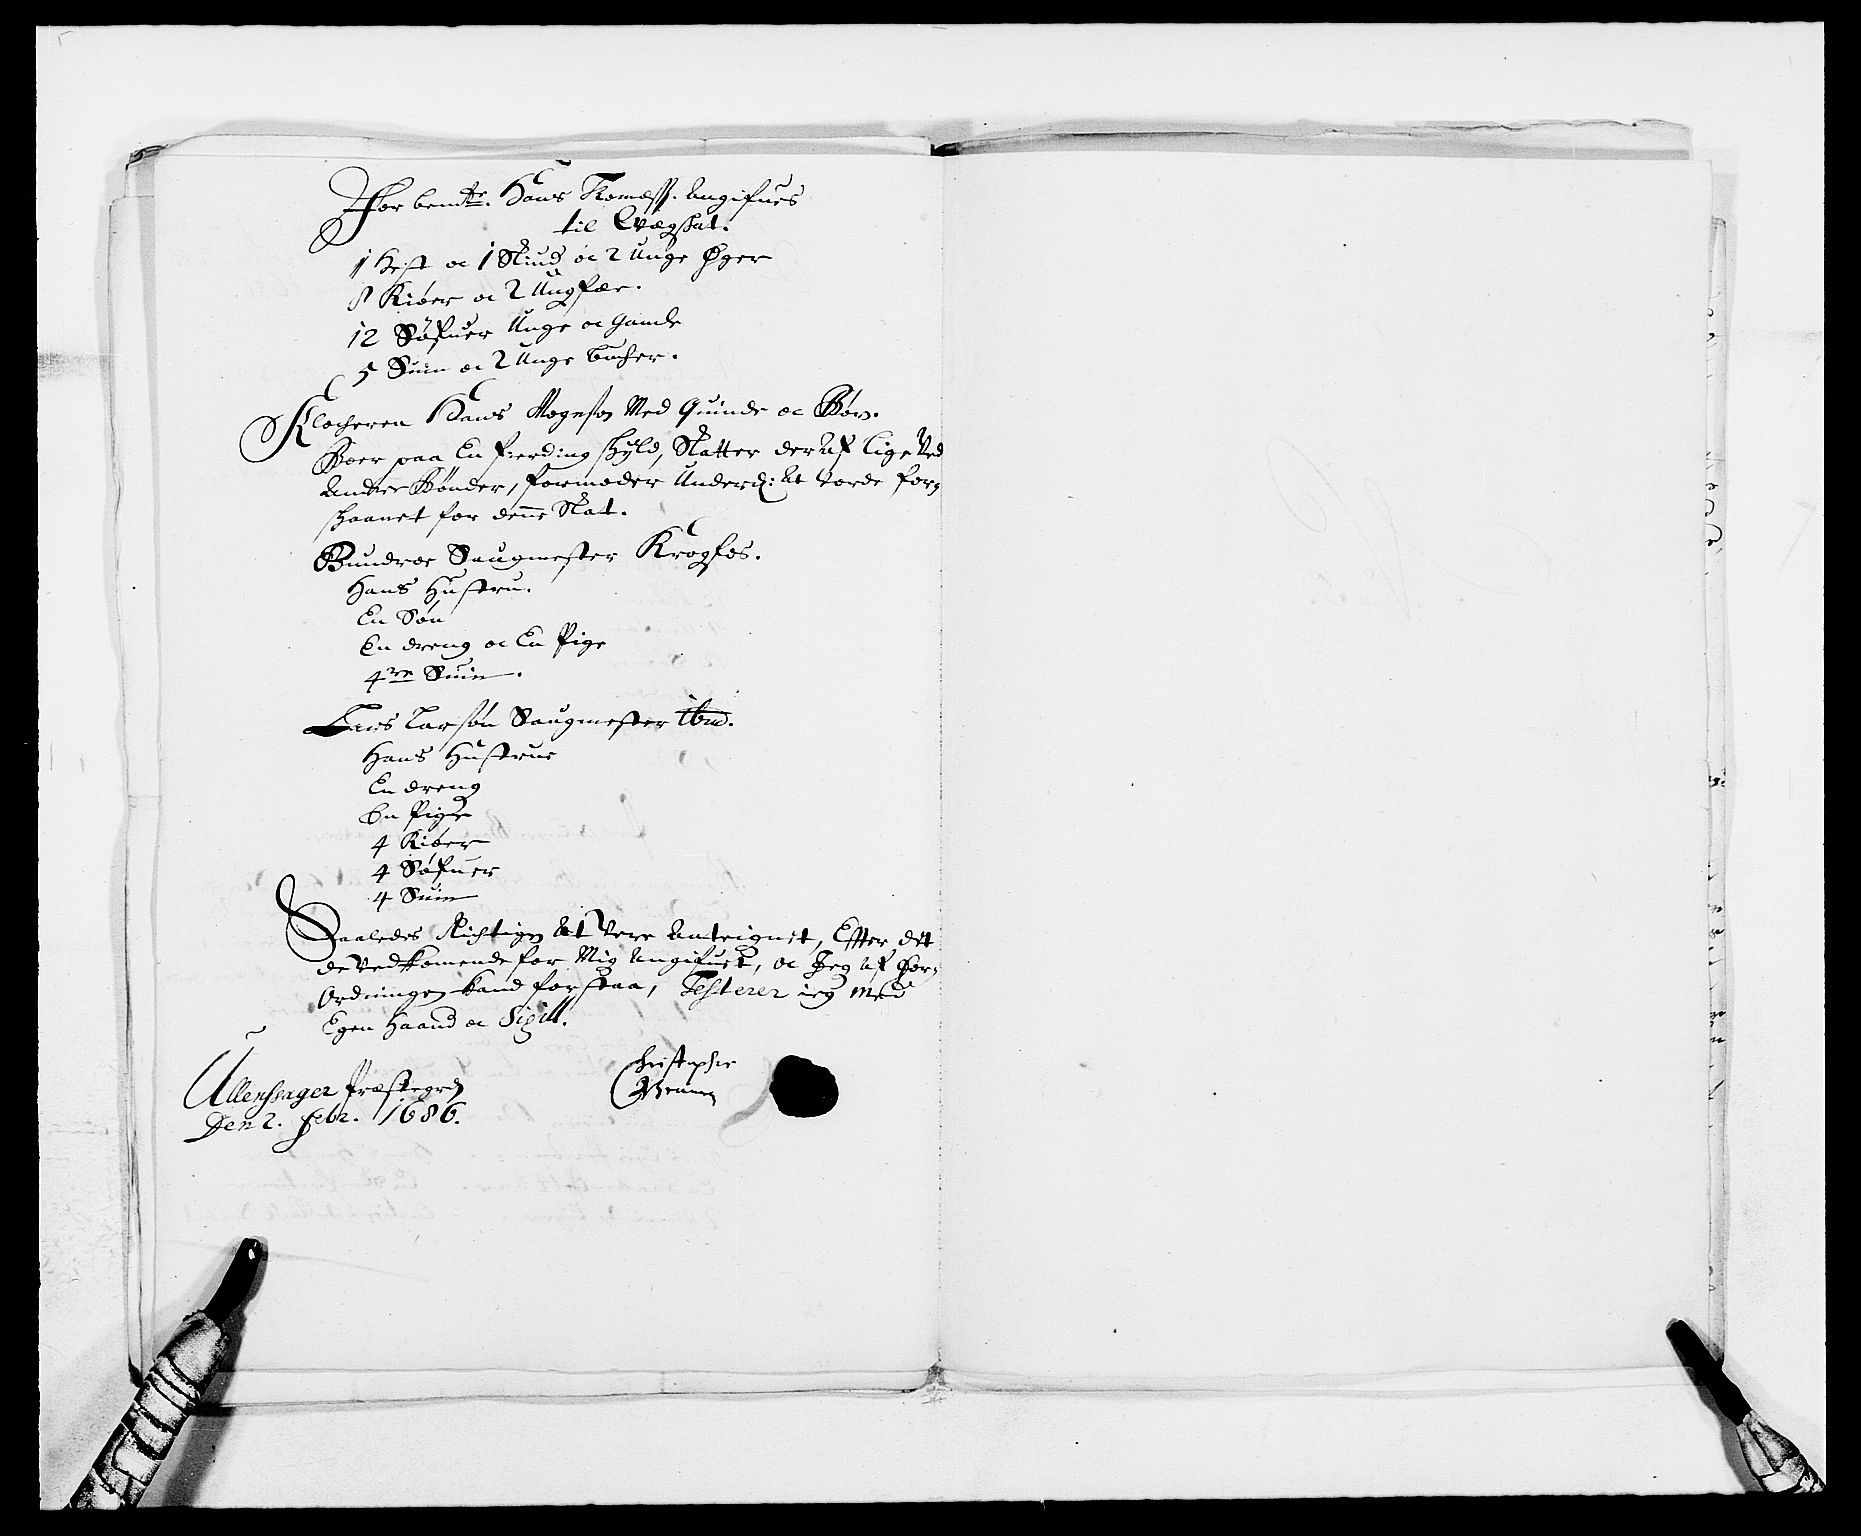 For bem.te Hans Thomæss. Angifues
til Qvægschat.
1 Hest oc 1 Stud oc 2 Unge Øger
8 Kiøer oc 2 Ungfæe.
12 Søfuer Unge oc Gamle
5 Suin oc 2 Unge bucher.
Klocheren Hans Mogensøn Med Quinde oc Børn.
Boer paa En fierding schyld, Skatter der Af lige Ved
Andre Bønder, formoder Underd: At vorde for-
schaanet for denne Skat.
Saugmester Krogfos.
Hans Hustru.
En Søn
En dreng oc En Pige
4re Suin.
Lars Larsøn Saugmester ibid.
Hans Hustrue
En dreng
En Pige
4 Kiøer
4 Søfuer
4 Suin
Saaledes Richtigen At Vere Anteignet, Effter det
de Vedkomende for Mig Angifuet, oc Jeg Af For-
Ordningen kand forstaa, Testerer ieg med
Egen Haand oc Sigill.
Ullensager Præstegrd
Den 2. Febr. 1686.
Christopher